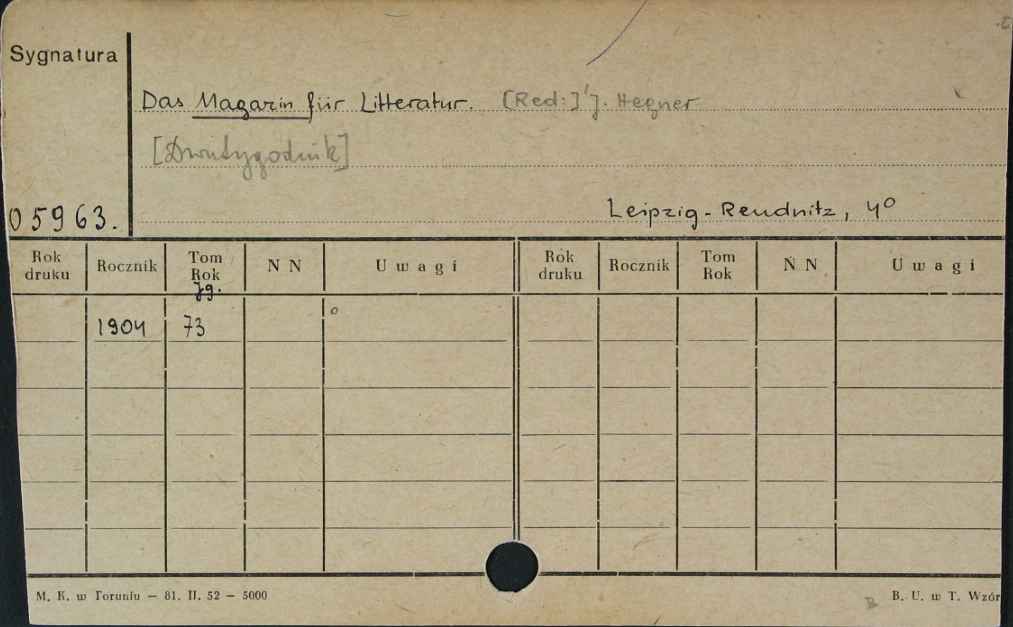 Sygnatura
Das Magazin für Litteratur. [Red:] J. Hegner
[Dwutygodnik]
05963.
Leipzig-Reudnitz, 4°
Rok druku Rocznik Tom Rok Jg. N N Uwagi Rok druku Rocznik Tom Rok N N Uwagi
1904 73
M. K. w Toruniu — 81. II. 52 — 5000
B. U. w T. Wzór